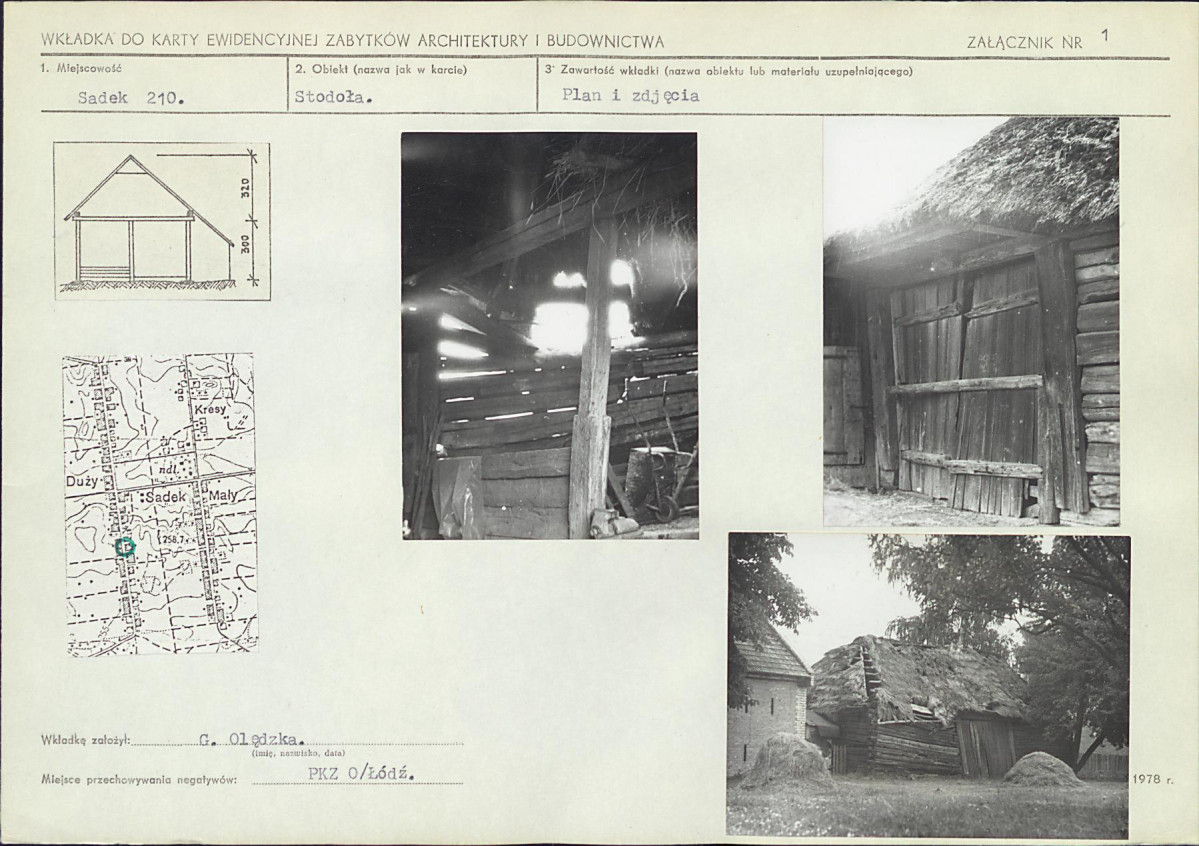 WKŁADKA DO KARTY EWIDENCYJNEJ ZABYTKÓW ARCHITEKTURY I BUDOWNICTWA
ZAŁĄCZNIK NR 1
1. Miejscowość
Sadek 210.
2. Obiekt (nazwa jak w karcie)
Stodoła.
3. Zawartość wkładki (nazwa obiektu lub materiału uzupełniającego)
Plan i zdjęcia
320
300
Kresy
ndl.
Duży
Sadek
Mały
258,7
Wkładkę założył: G. Olędzka.
(imię, nazwisko, data)
Miejsce przechowywania negatywów: PKZ O/Łódź.
1978 r.